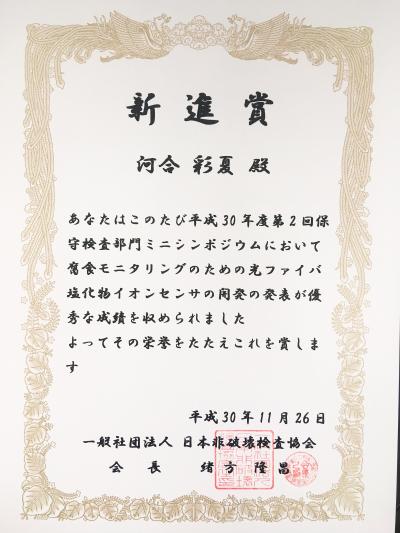 新進賞
河合 彩夏 殿
あなたはこのたび平成30年度第2回保
守検査部門ミニシンポジウムにおいて
腐食モニタリングのための光ファイバ
塩化物イオンセンサの開発の発表が優
秀な成績を収められました
よってその栄誉をたたえこれを賞しま
す
平成30年11月26日
一般社団法人 日本非破壊検査協会
会長 緒方隆昌